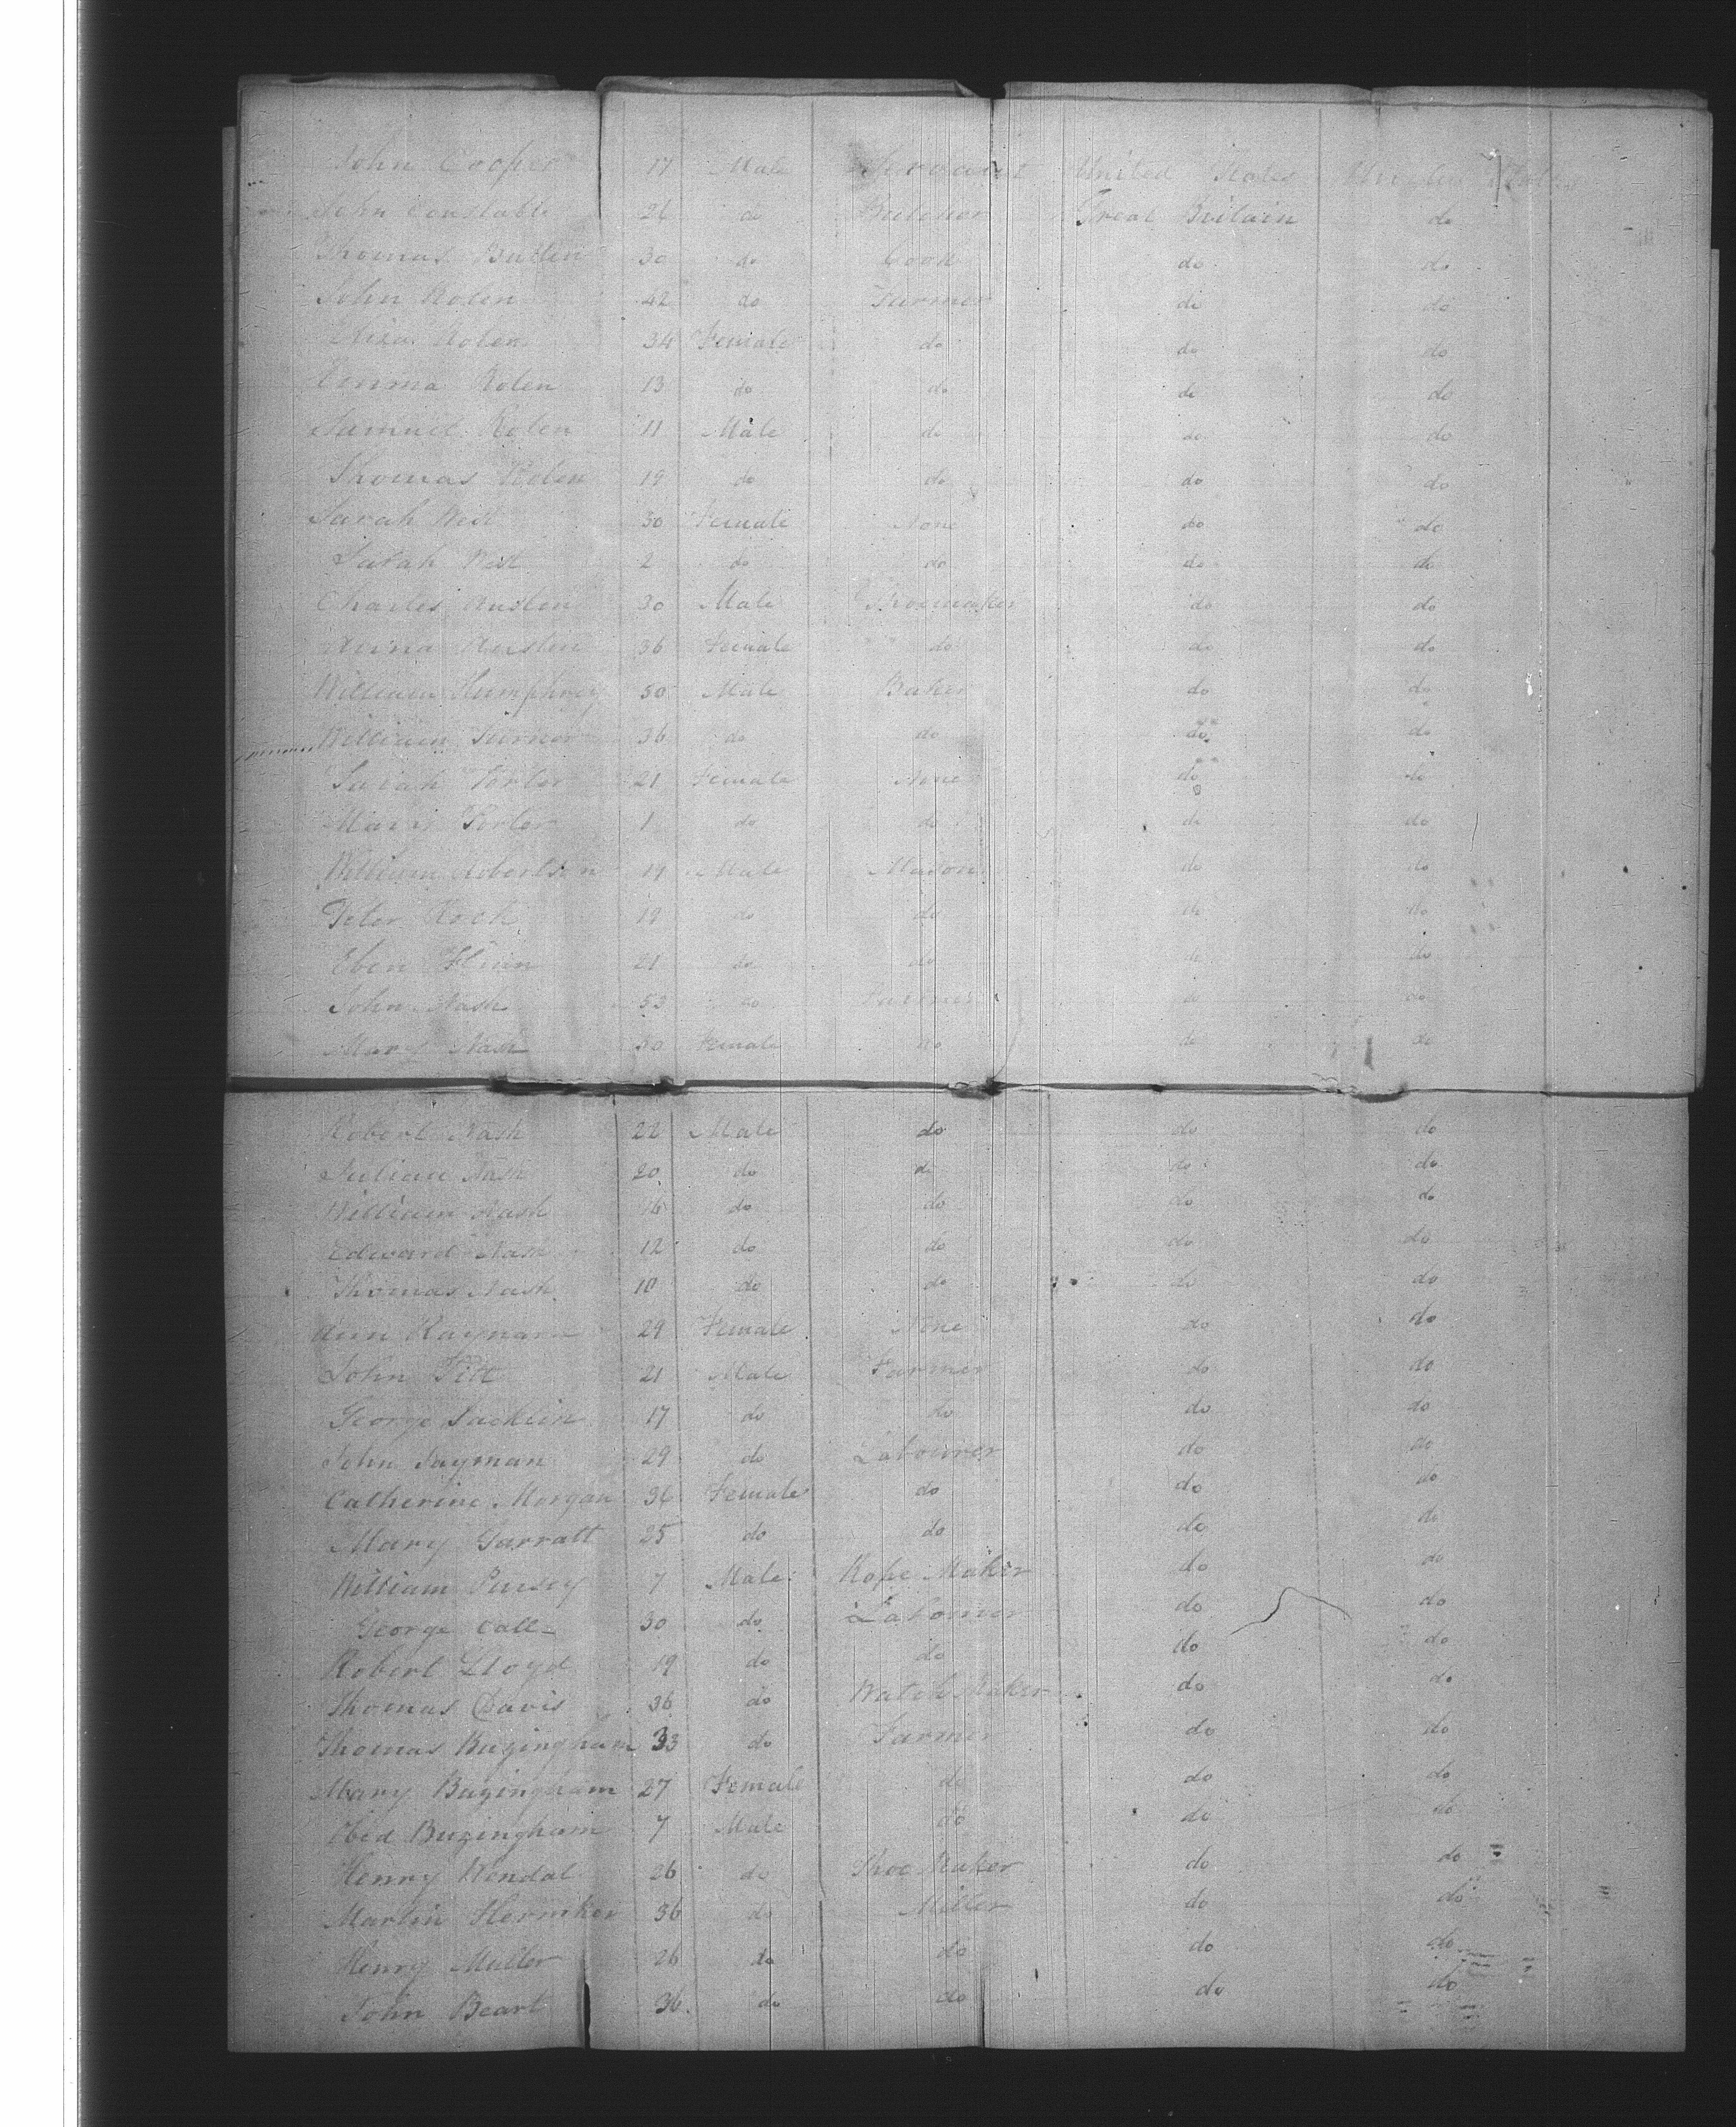 John Cooper 17 Male Servant United States United States
John Constable 26 do Butcher Great Britain do
Thomas Butten 30 do Cook do do
John Rolen 42 do Farmer do do
Eliza Rolen 34 Female do do do
Emma Rolen 13 do do do do
Samuel Rolen 11 Male do do do
Thomas Rolen 19 do do do do
Sarah West 30 Female None do do
Sarah West 2 do do do do
Charles Austen 30 Male Shoemaker do do
Anna Austin 36 Female do do do
William Humphrey 50 Male Baker do do
William Turner 36 do do do do
Sarah Porter 21 Female None do do
Mary Porter 1 do do do do
William Robertson 19 Male Mason do do
Peter Rock 19 do do do do
Eben 21 do do do do
John Nash 53 do Farmer do do
Mary Nash 50 Female do do do
Robert Nash 22 Male do do do
Nash 20 do do do do
William Nash 16 do do do do
Edward Nash 12 do do do do
Thomas Nash 10 do do do do
Ann Raynard 29 Female None do do
John Pitt 21 Male Farmer do do
George Jacklin 17 do do do do
John Jayman 29 do Labourer do do
Catherine Morgan 36 Female do do do
Mary Garratt 25 do do do do
William Pursey 7 Male Rope Maker do do
George Call 30 do Labourer do do
Robert Lloyd 19 do do do do
Thomas Davis 36 do Watch Maker do do
Thomas Buzingham 33 do Farmer do do
Mary Buzingham 27 Female do do do
Obed Buzingham 7 Male do do do
Henry Wendal 26 do Shoe Maker do do
Martin Herniker 36 do Miller do do
Henry Muller 26 do do do do
John Beart 36 do do do do